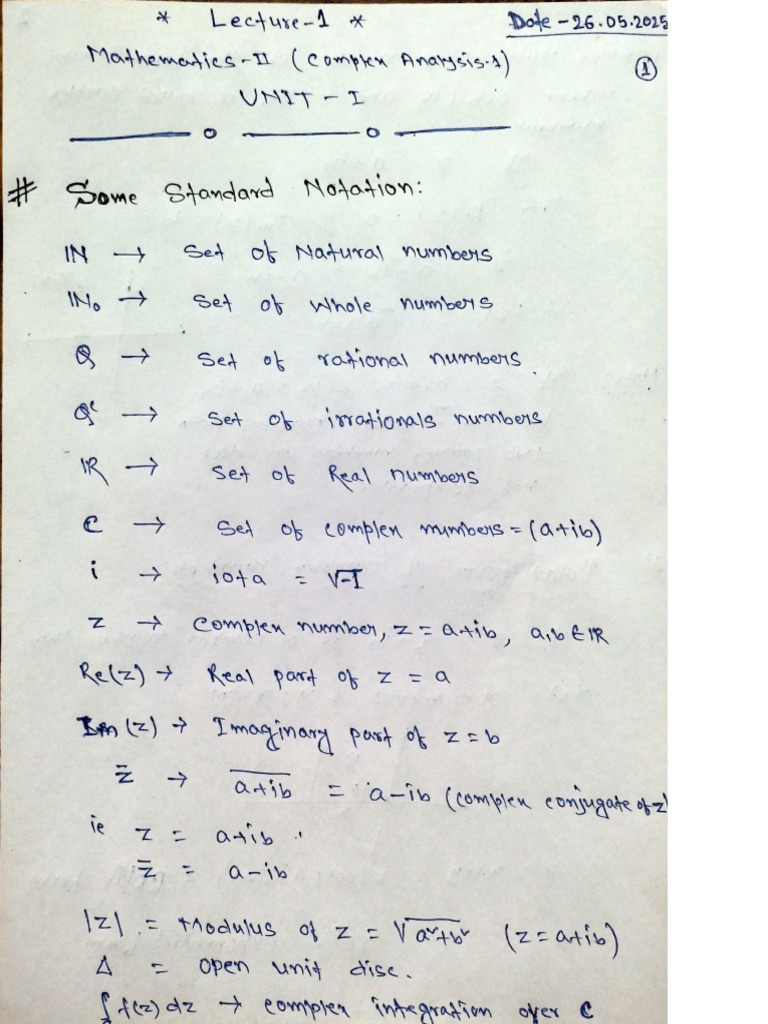 * Lecture-1 *
Date - 26.05.2025
Mathematics-II (Complex Analysis-1)
①
UNIT - I
# Some Standard Notation:
ℕ → Set of Natural numbers
ℕ₀ → Set of Whole numbers
ℚ → Set of rational numbers.
ℚᶜ → Set of irrationals numbers
ℝ → Set of Real numbers
ℂ → Set of complex numbers = (a+ib)
i → iota = √-1
z → Complex number, z = a+ib, a,b ∈ ℝ
Re(z) → Real part of z = a
Im(z) → Imaginary part of z = b
z̄ → \overline{a+ib} = a-ib (complex conjugate of z)
ie z = a+ib
z̄ = a-ib
|z| = Modulus of z = √(a²+b²) (z = a+ib)
Δ = open unit disc.
∫ f(z) dz → complex integration over C